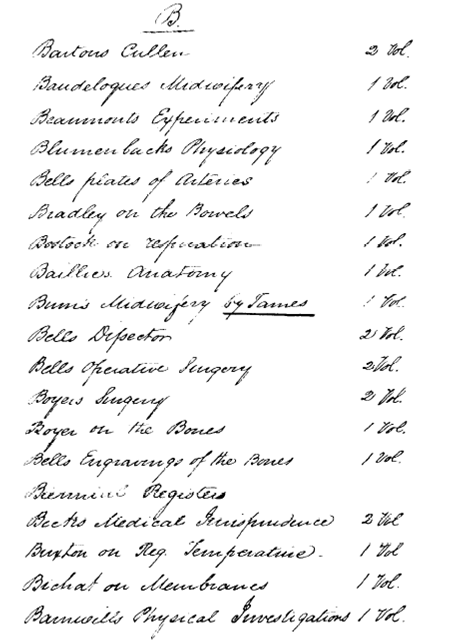 B.
Bartons Cullen 2 Vol.
Baudelogues Midwifery 1 Vol.
Beaumonts Experiments 1 Vol.
Blumenbacks Physiology 1 Vol.
Bells plates of Arteries 1 Vol.
Bradley on the Bowels 1 Vol.
Bostock on respiration 1 Vol.
Baillies Anatomy 1 Vol.
Burns Midwifery by James 1 Vol.
Bells Dissector 2 Vol.
Bells Operative Surgery 2 Vol.
Boyers Surgery 2 Vol.
Boyer on the Bones 1 Vol.
Bells Engravings of the Bones 1 Vol.
Biennial Registers
Becks Medical Jurisprudence 2 Vol
Buxton on Reg. Temperature. 1 Vol
Bichat on Membranes 1 Vol.
Physical Investigations 1 Vol.